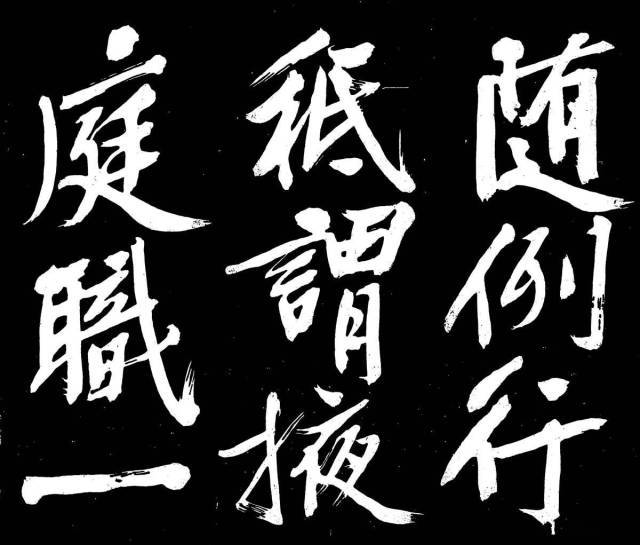 随例行
秖謂掖
庭職一